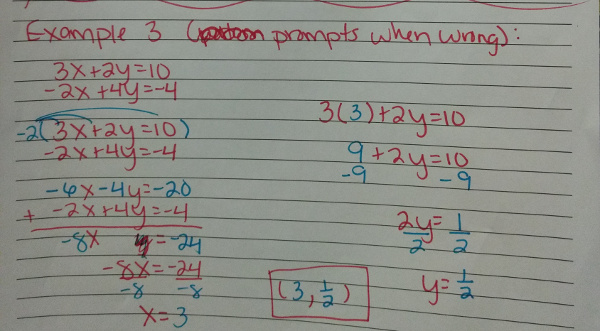 Example 3 (prompts when wrong):
3x+2y=10
-2x+4y=-4
-2(3x+2y=10)
-2x+4y=-4
-6x-4y=-20
+ -2x+4y=-4
-8x = -24
-8x = -24
-8 -8
x=3
3(3)+2y=10
9+2y=10
-9 -9
2y = 1
2 2
y = 1/2
(3, 1/2)